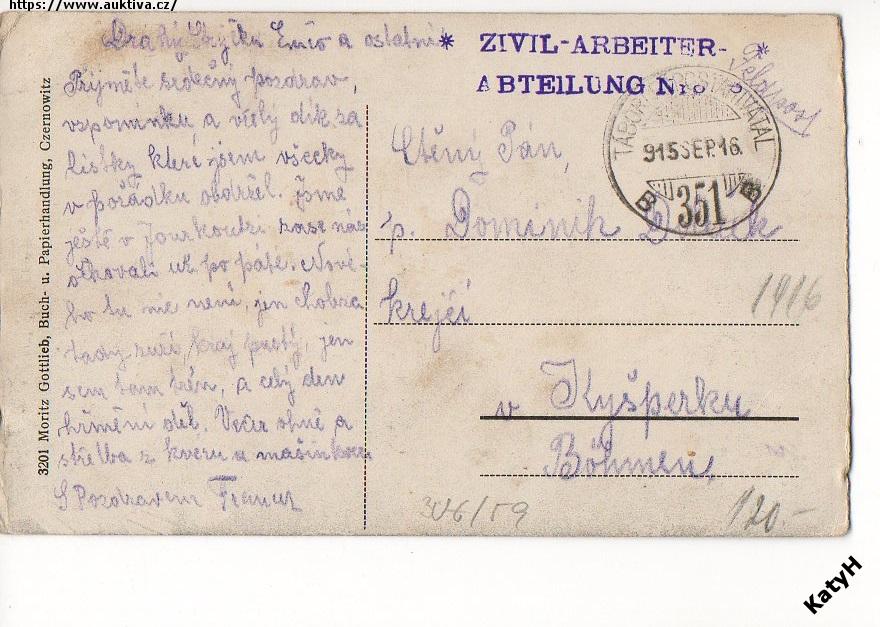 https://www.auktiva.cz/
Drahý Strýčku Emo a ostatní
Přijměte srdečný pozdrav,
vzpomínku, a vřelý dík za
lístky které jsem všecky
v pořádku obdržel. Jsme
ještě v
zase nás
očkovali už po páté. Nové-
ho tu nic není, jen
tady zuří, kraj pustý, jen
sem tam trén, a celý den
hřmění děl. Večer ohně a
střelba z kvérů a
S Pozdravem
3201 Moritz Gottlieb, Buch- u. Papierhandlung, Czernowitz
* ZIVIL-ARBEITER- *
ABTEILUNG Nr.
Feldpost
TÁBORI POSTAHIVATAL
915SEP.16.
B 351 B
Ctěný Pán,
p. Dominik
krejčí
1916
v Kyšperku
Böhmen,
306/59
120.-
KatyH